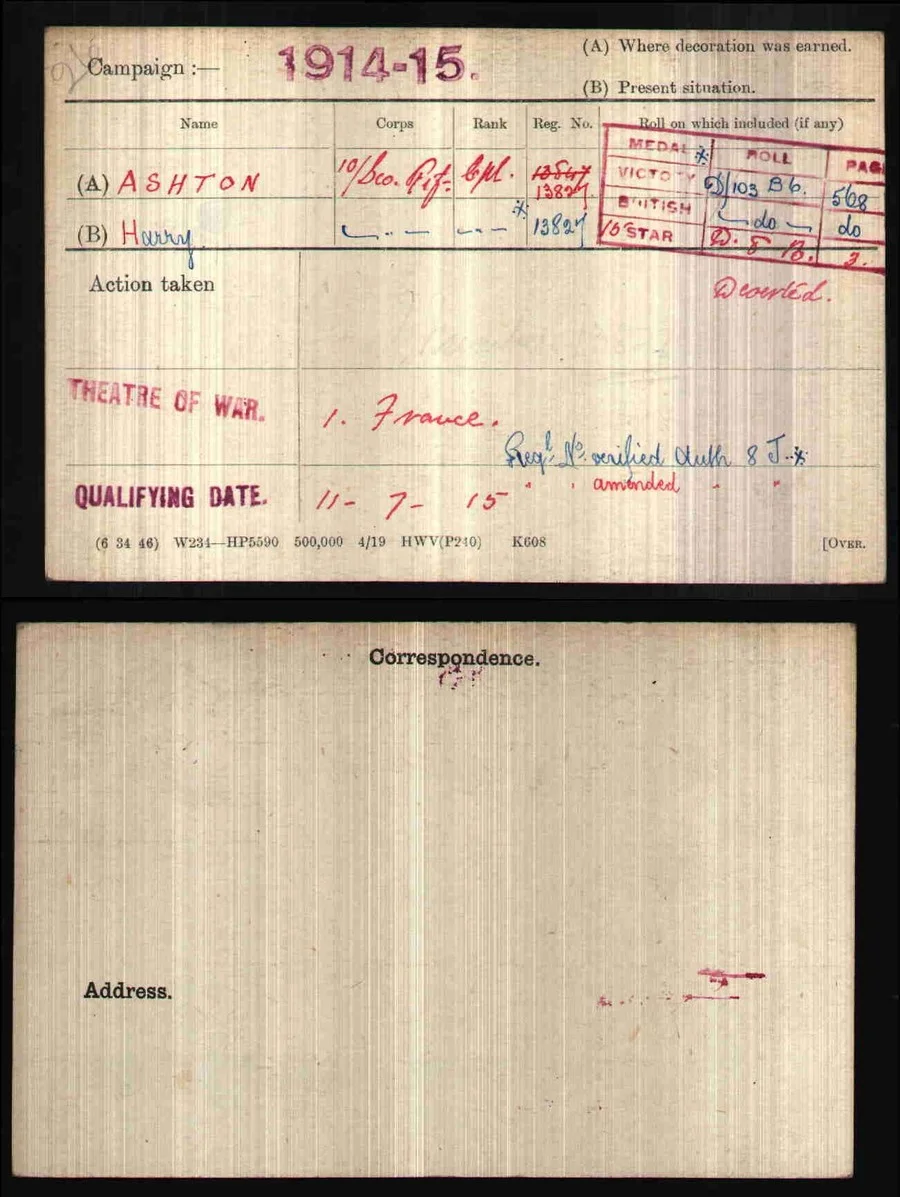 Campaign :— 1914-15.
(A) Where decoration was earned.
(B) Present situation.
Name Corps Rank Reg. No. Roll on which included (if any)
MEDAL * ROLL PAGE
(A) ASHTON 10/Sco. Rif. Cpl. 13827
VICTORY D/103 B6. 568
BRITISH do do
(B) Harry — " — — " — * 13827
15 STAR D. 5 B. 3.
Action taken
Deserted.
THEATRE OF WAR. 1. France.
Regl. No. verified Auth 8 J..*
QUALIFYING DATE. 11- 7- 15 " " amended " "
(6 34 46) W234—HP5590 500,000 4/19 HWV(P240) K608 [OVER.
Correspondence.
Address.